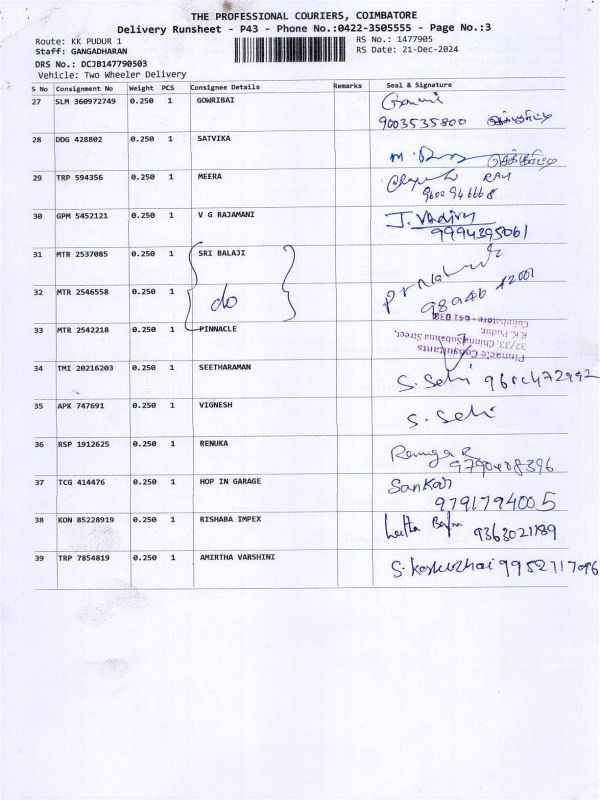 THE PROFESSIONAL COURIERS, COIMBATORE
Delivery Runsheet - P43 - Phone No.:0422-3505555 - Page No.:3
Route: KK PUDUR 1 RS No.: 1477905
Staff: GANGADHARAN RS Date: 21-Dec-2024
DRS No.: DCJB147790503
Vehicle: Two Wheeler Delivery
S No Consignment No Weight PCS Consignee Details Remarks Seal & Signature
27 SLM 360972749 0.250 1 GOWRIBAI
9003535800
28 DDG 428802 0.250 1 SATVIKA
29 TRP 594356 0.250 1 MEERA
9600946668
30 GPM 5452121 0.250 1 V G RAJAMANI
9994395061
31 MTR 2537085 0.250 1 SRI BALAJI
32 MTR 2546558 0.250 1 do
33 MTR 2542218 0.250 1 PINNACLE
Pinnacle Consultants
37/33, Chinna Subanna Street,
K.K. Pudur,
Coimbatore - 641 038
34 TMI 20216203 0.250 1 SEETHARAMAN S. Selvi
35 APK 747691 0.250 1 VIGNESH S. Selvi
36 RSP 1912625 0.250 1 RENUKA
37 TCG 414476 0.250 1 HOP IN GARAGE Sankar
9791794005
38 KON 85228919 0.250 1 RISHABA IMPEX 9363021189
39 TRP 7854819 0.250 1 AMIRTHA VARSHINI 9952717096